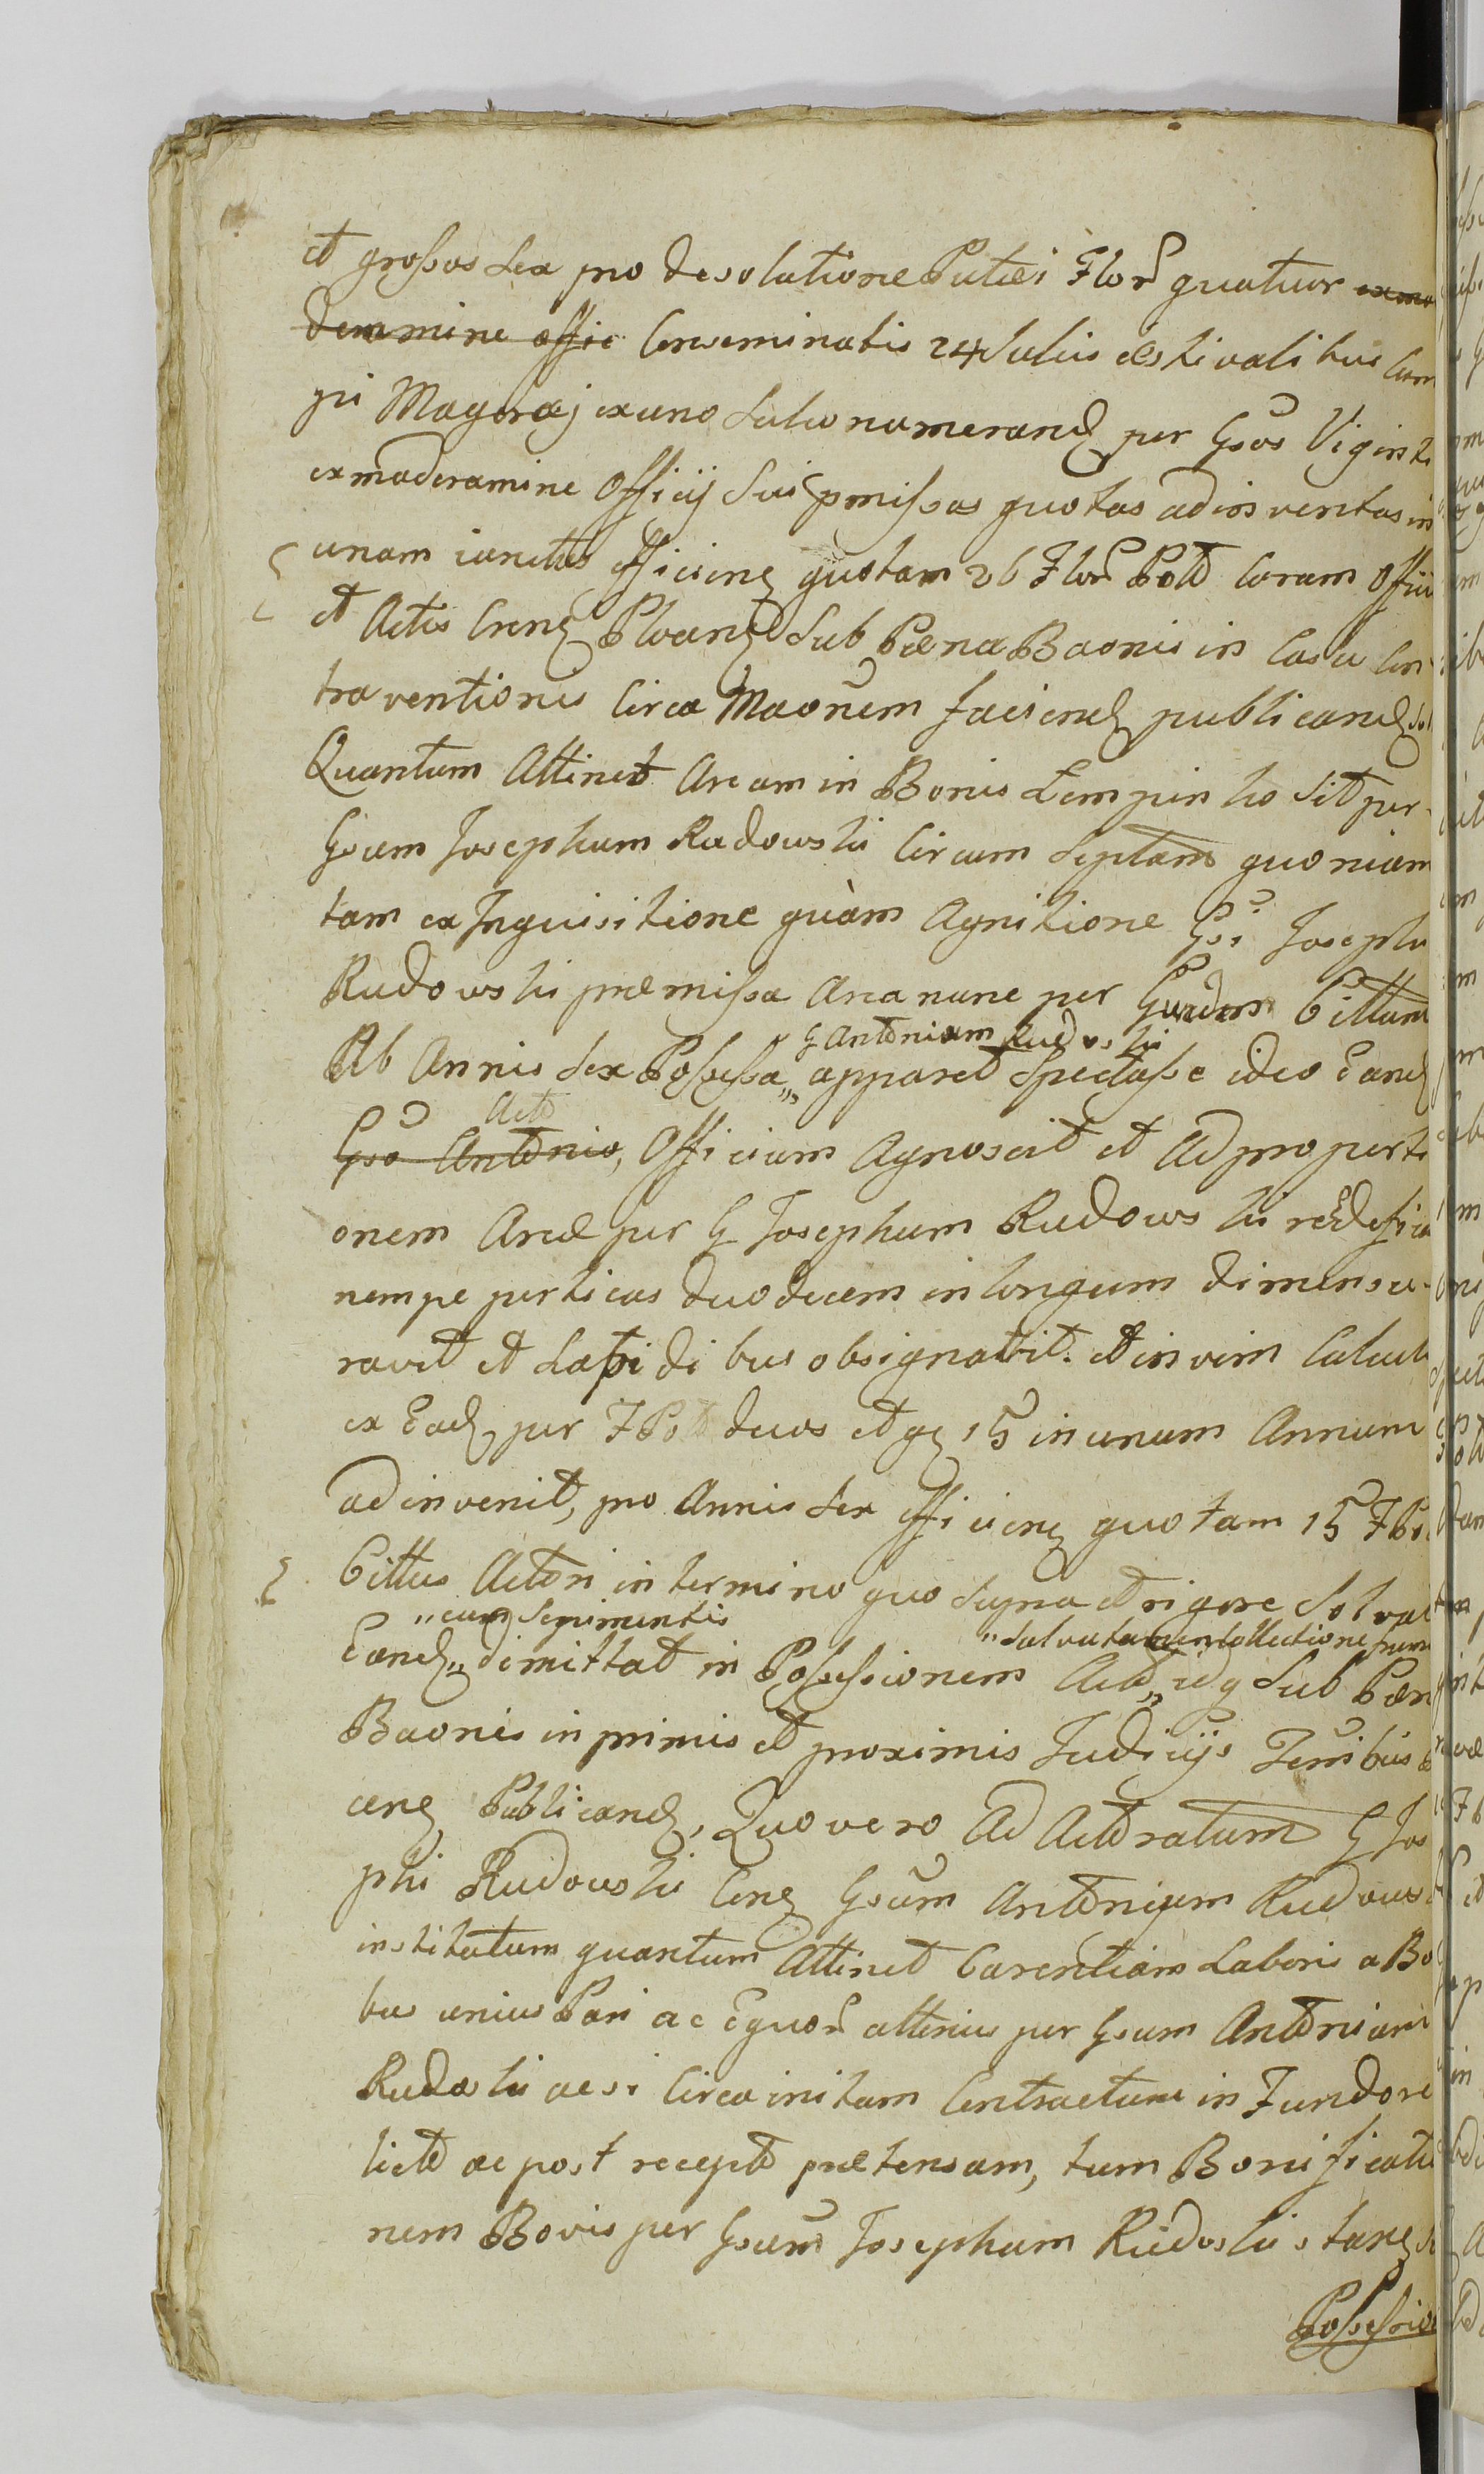 et grossos sex pro desolatione Putei Flor̃ quatuor exmo
deramine offic Conseminatis 24 Sulcis æstivalibus Cam
pi Magoræj ex uno Sulco numerand per Gsos Viginti
ex moderamine Officij Sui pmissas quotas adinventas in
unam iunctas efficien quotam 26 Flor Pol Coram Offii
et Actis Cren Plvand Sub Pæna Baonis in Casu Con
traventionis Circa Maonem faciend publicand
Quantum Attinet Aream in Bonis Lempinko Sit per
Gsum Josephum Rudowski Circum Septam quoniam
tam ex Inquisitione quàm Agnitione Gsi Josephi
Rudowski præmissa Area nunc per Cittum
Ab Annis Sex Possessa „ apparet Spectasse ideo Eand
G Antonium Rudoski
Act
Gso Antonio, Officium Agnoscit et Ad proporti
onem Areæ per G Josephum Rudowski reædefica
nempe perticas duodecem in longum dimensu-
ravit et Lapidibus obsignavit. et in vim Calculi
ex Ead per F Pol duos et g 15 in unum Annum
adinvenit, pro Annis Sex efficien quotam 15 F Pol
Cittus Actori in termino quo Supra et rigore Solvat
„ cum Sepimentis
„ Salva tamen Collectione
Eand „ dimittat in Possessionem Act „ idq Sub Pæn
Baonis in primis et proximis Judicijs Terribus
cend Publicand, Quo vero Ad Actoratum G Jos
phi Rudowski Con Gsum Antonium Rudows
institutum quantum Attinet Carentiam Laboris a Bo
bus unius Pari ac Equor alterius per Gsum Antonium
Rudoski acsi Circa initum Contractum in Fundo re
lict ac post recept prætensam, tum Bonificatio
nem Bovis per Gsum Josephum Rudoski stan
Possessio